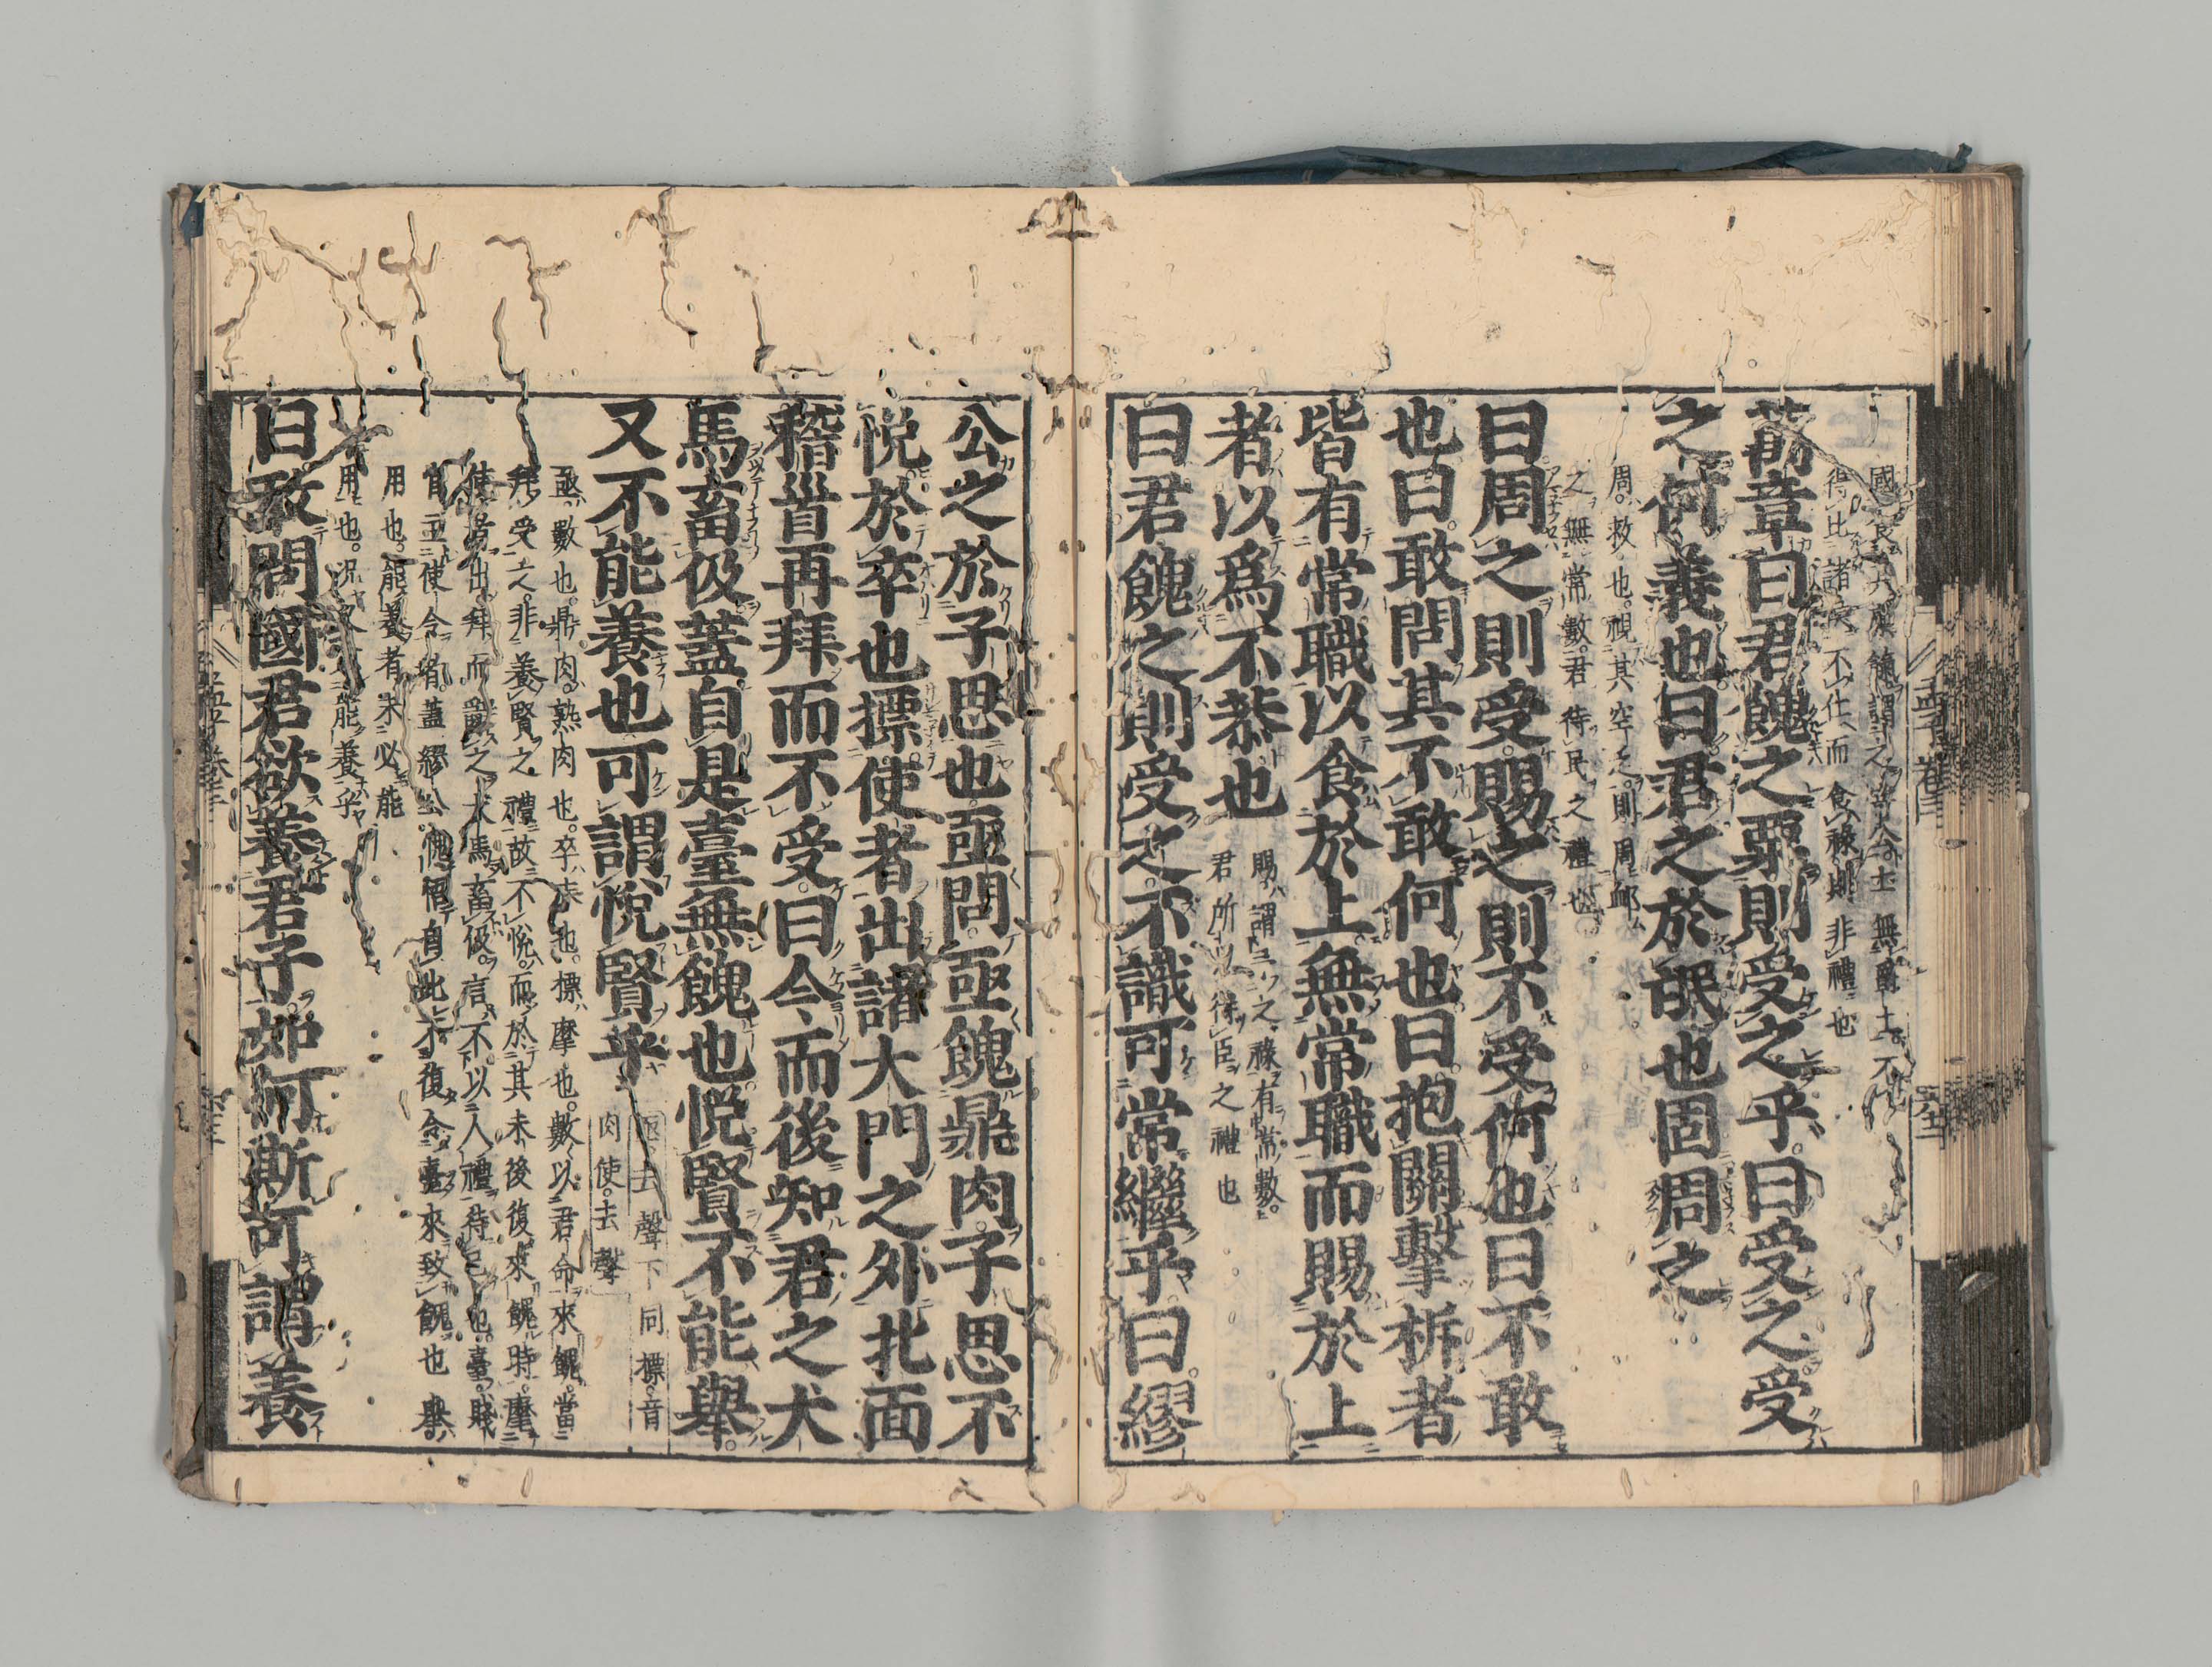 國食其廩餼謂之寄公士無爵土不
得比諸侯不仕而食祿則非禮也
萬章曰君餽之粟則受之乎曰受之受
之何義也曰君之於氓也固周之
周救也視其空乏則周卹
之無常數君待民之禮也
曰周之則受賜之則不受何也曰不敢
也曰敢問其不敢何也曰抱關擊柝者
皆有常職以食於上無常職而賜於上
者以為不恭也
賜謂予之祿有常數
君所以待臣之禮也
曰君餽之則受之不識可常繼乎曰繆
公之於子思也亟問亟餽鼎肉子思不
悅於卒也摽使者出諸大門之外北面
稽首再拜而不受曰今而後知君之犬
馬畜伋蓋自是臺無餽也悅賢不能舉
又不能養也可謂悅賢乎
亟去聲下同摽音
肉使去聲
亟數也鼎肉熟肉也卒末也摽麾也數以君命來餽當
拜受之非養賢之禮故不悅而於其末後復來餽時麾
使者出拜而辭之犬馬畜伋言不以人禮待己也臺賤
官主使令者蓋繆公愧悟自此不復令臺來致餽也舉
用也能養者未必能
用也況又不能養乎
曰敢問國君欲養君子如何斯可謂養